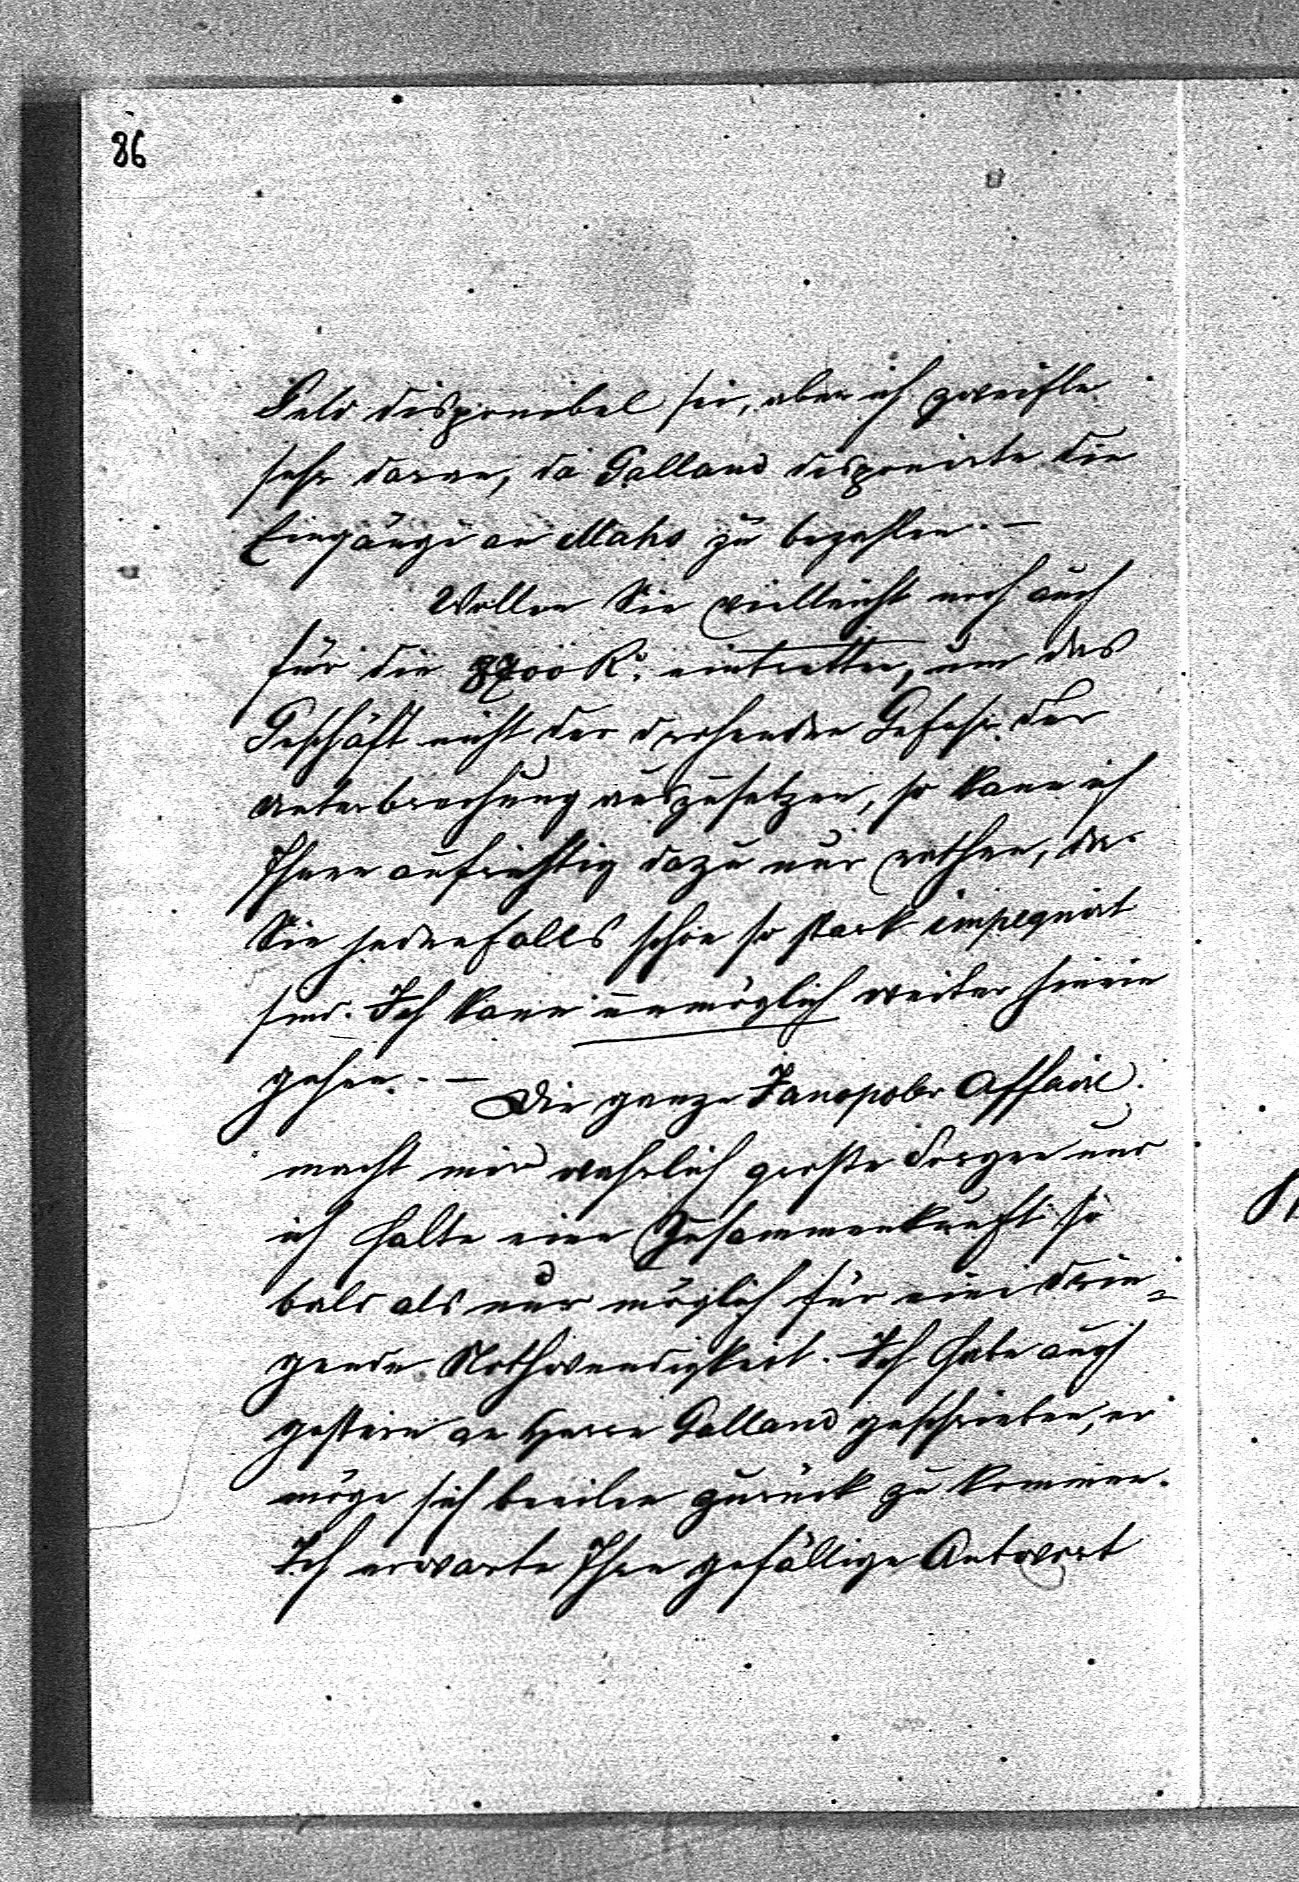 86
Geld disponibel sei, aber ich zweifle
sehr daran, da Galland disponirte die
Eingänge an Mahs zu bezahlen. —
Wollen Sie vielleicht noch auch
für die 8700 R. eintretten, um das
Geschäft nicht der drohenden Gefahr der
Unterbrechung auszusetzen, so kann ich
Ihnen aufrichtig dazu nur rathen, da
Sie jedenfalls schon so stark impegnirt
sind. Ich kann unmöglich weiter hinein
gehen. —
Die ganze Janopoler Affaire
macht mir wahrlich große Sorgen und
ich halte eine Zusammenkunft so
bald als nur möglich für eine drin=
gende Nothwendigkeit. Ich habe auch
gestern an Herrn Galland geschrieben, er
möge sich beeilen zurück zu kommen.
Ich erwarte Ihre gefällige Antwort